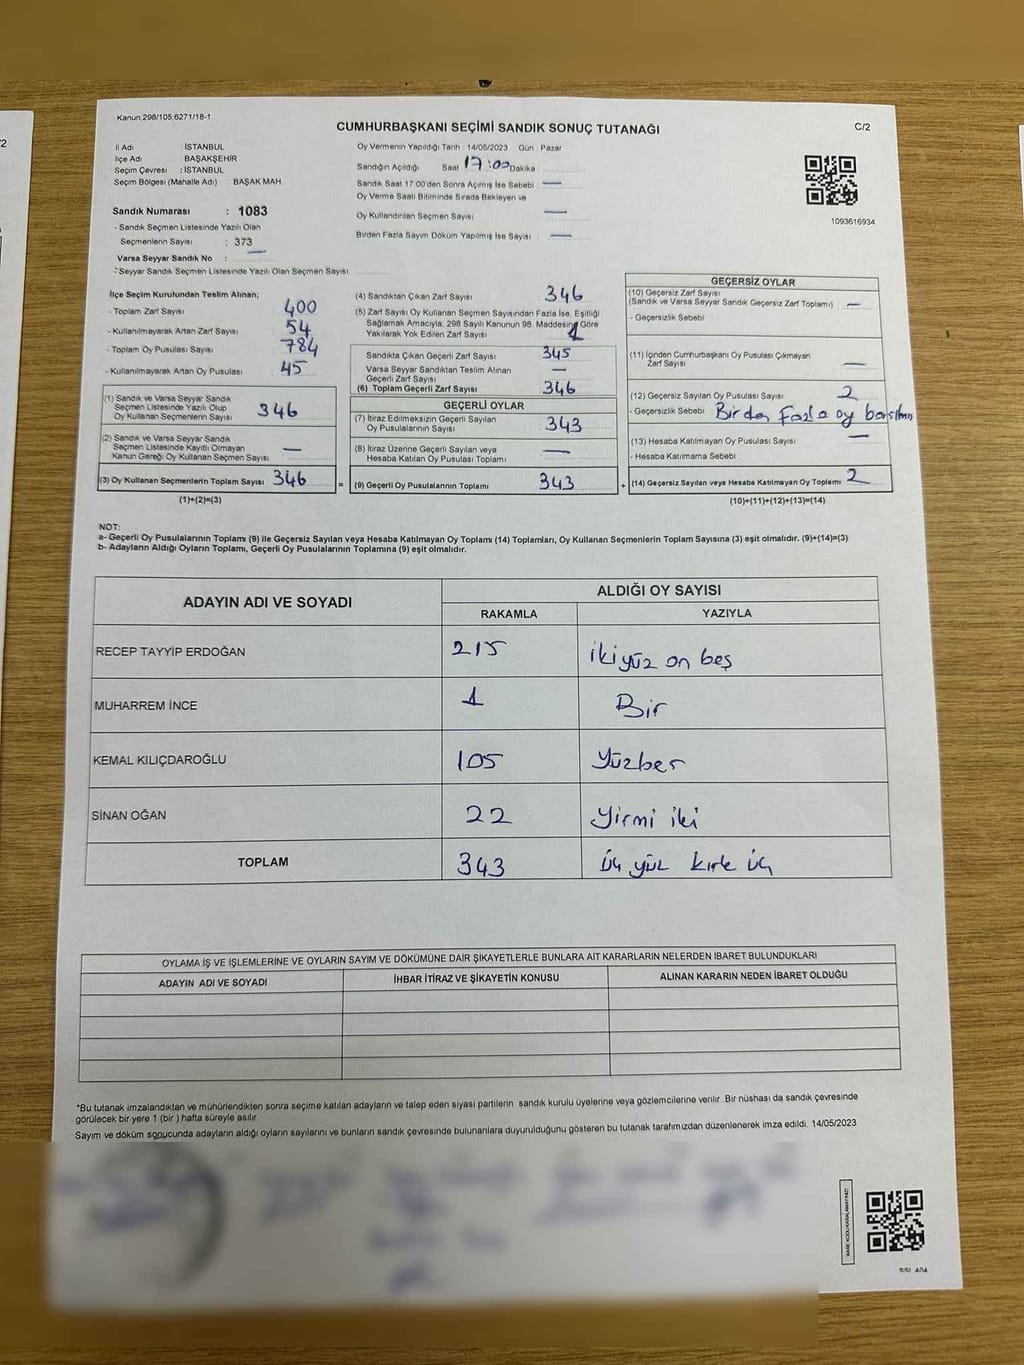 Kanun,298/105,6271/18-1
CUMHURBAŞKANI SEÇİMİ SANDIK SONUÇ TUTANAĞI
C/2
İl Adı : İSTANBUL
İlçe Adı : BAŞAKŞEHİR
Seçim Çevresi : İSTANBUL
Seçim Bölgesi (Mahalle Adı) : BAŞAK MAH.
Sandık Numarası : 1083
- Sandık Seçmen Listesinde Yazılı Olan
Seçmenlerin Sayısı : 373
Varsa Seyyar Sandık No : —
- Seyyar Sandık Seçmen Listesinde Yazılı Olan Seçmen Sayısı:
Oy Vermenin Yapıldığı Tarih : 14/05/2023 Gün : Pazar
Sandığın Açıldığı Saat 17:00 Dakika :
Sandık Saat 17:00'den Sonra Açımış İse Sebebi : —
Oy Verme Saati Bitiminde Sırada Bekleyen ve
Oy Kullandırılan Seçmen Sayısı —
Birden Fazla Sayım Döküm Yapılmış İse Sayısı : —
1093616934
İlçe Seçim Kurulundan Teslim Alınan;
- Toplam Zarf Sayısı 400
- Kullanılmayarak Artan Zarf Sayısı 54
- Toplam Oy Pusulası Sayısı 784
- Kullanılmayarak Artan Oy Pusulası 45
(1) Sandık ve Varsa Seyyar Sandık
Seçmen Listesinde Yazılı Olup
Oy Kullanan Seçmenlerin Sayısı 346
(2) Sandık ve Varsa Seyyar Sandık
Seçmen Listesinde Kayıtlı Olmayan
Kanun Gereği Oy Kullanan Seçmen Sayısı —
(3) Oy Kullanan Seçmenlerin Toplam Sayısı 346
(1)+(2)=(3)
(4) Sandıktan Çıkan Zarf Sayısı 346
(5) Zarf Sayısı Oy Kullanan Seçmen Sayısından Fazla İse, Eşitliği
Sağlamak Amacıyla, 298 Sayılı Kanunun 98. Maddesine Göre
Yakılarak Yok Edilen Zarf Sayısı 1
Sandıkta Çıkan Geçerli Zarf Sayısı 345
Varsa Seyyar Sandıktan Teslim Alınan
Geçerli Zarf Sayısı —
(6) Toplam Geçerli Zarf Sayısı 346
GEÇERLİ OYLAR
(7) İtiraz Edilmeksizin Geçerli Sayılan
Oy Pusulalarının Sayısı 343
(8) İtiraz Üzerine Geçerli Sayılan veya
Hesaba Katılan Oy Pusulası Toplamı —
= (9) Geçerli Oy Pusulalarının Toplamı 343
GEÇERSİZ OYLAR
(10) Geçersiz Zarf Sayısı
(Sandık ve Varsa Seyyar Sandık Geçersiz Zarf Toplamı) —
- Geçersizlik Sebebi :
(11) İçinden Cumhurbaşkanı Oy Pusulası Çıkmayan
Zarf Sayısı —
(12) Geçersiz Sayılan Oy Pusulası Sayısı 2
- Geçersizlik Sebebi Birden fazla oy
(13) Hesaba Katılmayan Oy Pusulası Sayısı —
- Hesaba Katılmama Sebebi :
+ (14) Geçersiz Sayılan veya Hesaba Katılmayan Oy Toplamı 2
(10)+(11)+(12)+(13)=(14)
NOT:
a- Geçerli Oy Pusulalarının Toplamı (9) ile Geçersiz Sayılan veya Hesaba Katılmayan Oy Toplamı (14) Toplamları, Oy Kullanan Seçmenlerin Toplam Sayısına (3) eşit olmalıdır. (9)+(14)=(3)
b- Adayların Aldığı Oyların Toplamı, Geçerli Oy Pusulalarının Toplamına (9) eşit olmalıdır.
ADAYIN ADI VE SOYADI
ALDIĞI OY SAYISI
RAKAMLA YAZIYLA
RECEP TAYYİP ERDOĞAN 215 ikiyüz on beş
MUHARREM İNCE 1 Bir
KEMAL KILIÇDAROĞLU 105 Yüzbeş
SİNAN OĞAN 22 Yirmi iki
TOPLAM 343 üç yüz kırk üç
OYLAMA İŞ VE İŞLEMLERİNE VE OYLARIN SAYIM VE DÖKÜMÜNE DAİR ŞİKAYETLERLE BUNLARA AİT KARARLARIN NELERDEN İBARET BULUNDUKLARI
ADAYIN ADI VE SOYADI İHBAR İTİRAZ VE ŞİKAYETİN KONUSU ALINAN KARARIN NEDEN İBARET OLDUĞU
*Bu tutanak imzalandıktan ve mühürlendikten sonra seçime katılan adayların ve talep eden siyasi partilerin sandık kurulu üyelerine veya gözlemcilerine verilir. Bir nüshası da sandık çevresinde
görülecek bir yere 1 (bir) hafta süreyle asılır.
Sayım ve döküm sonucunda adayların aldığı oyların sayılarını ve bunların sandık çevresinde bulunanlara duyurulduğunu gösteren bu tutanak tarafımızdan düzenlenerek imza edildi. 14/05/2023